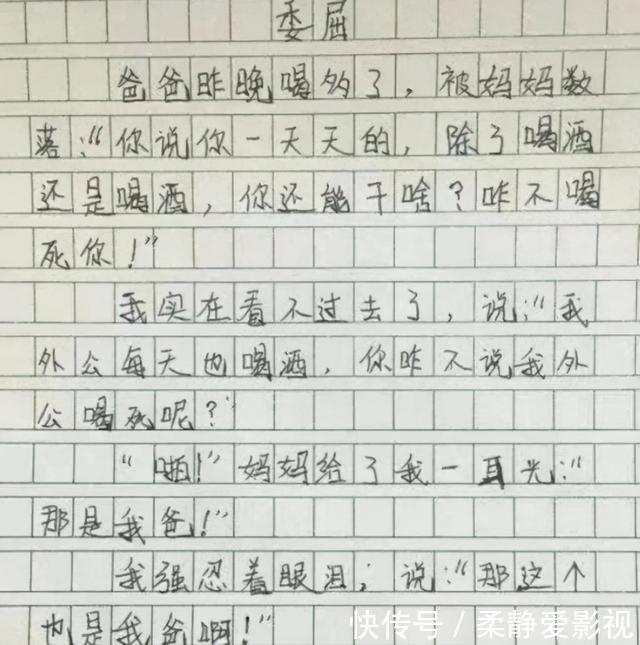 委屈
爸爸昨晚喝多了，被妈妈数
落：“你说你一天天的，除了喝酒
还是喝酒，你还能干啥？咋不喝
死你！”
我实在看不过去了，说：“我
外公每天也喝酒，你咋不说我外
公喝死呢？”
“啪！”妈妈给了我一耳光：“
那是我爸！”
我强忍着眼泪；说：“那这个
也是我爸啊！”
快传号 / 柔静爱影视